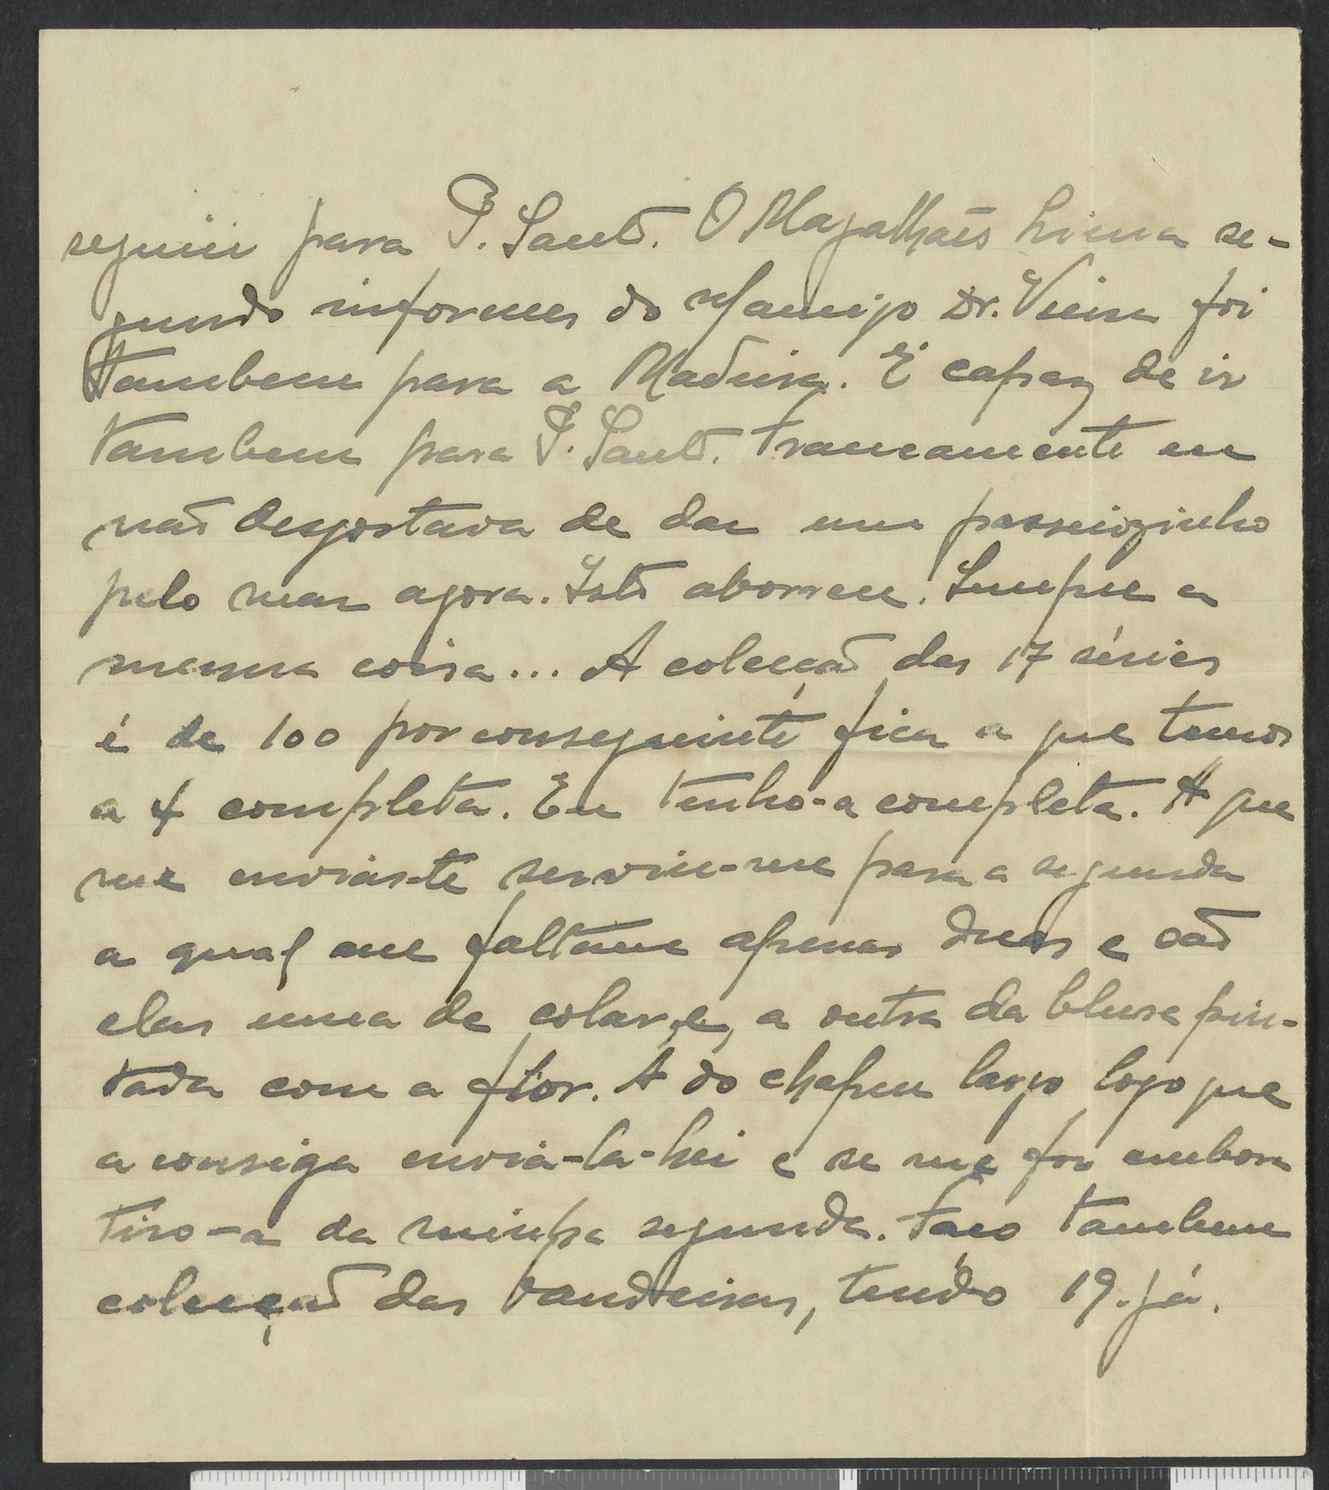 seguiu para P. Santo. O Magalhães Lima se-
gundo informes do Mamigo Dr. Vieira foi
tambem para a Madeira. E' capaz de ir
tambem para P. Santo. Francamente eu
não desgostava de dar um passeiozinho
pelo mar agora. Isto aborrece. Sempre a
mesma coisa... A colecção das 17 séries
é de 100 por conseguinte fica a que temos
a 4 completa. Eu tenho-a completa. A que
me enviaste serviu-me para a segunda
a qual me faltam apenas duas e são
elas uma de colar, e, a outra da blusa pin-
tada com a flor. A do chapeu largo logo que
a consiga envia-la-hei e se me for embora
tiro-a da minha segunda. Faço tambem
colecção das bandeiras, tendo 19. já.